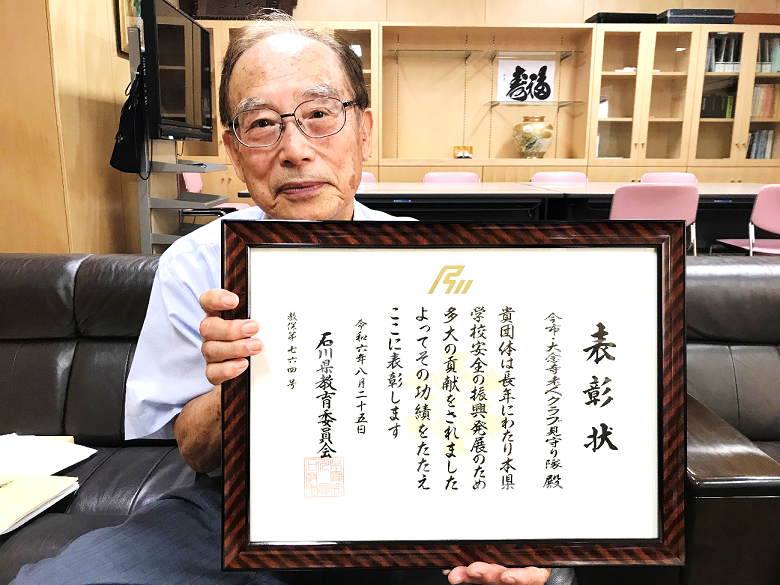 表彰状
今市・大念寺老人クラブ見守り隊 殿
貴団体は長年にわたり本県
学校安全の振興発展のため
多大の貢献をされました
よってその功績をたたえ
ここに表彰します
令和六年八月二十五日
石川県教育委員会
教保第七六四号
福寿